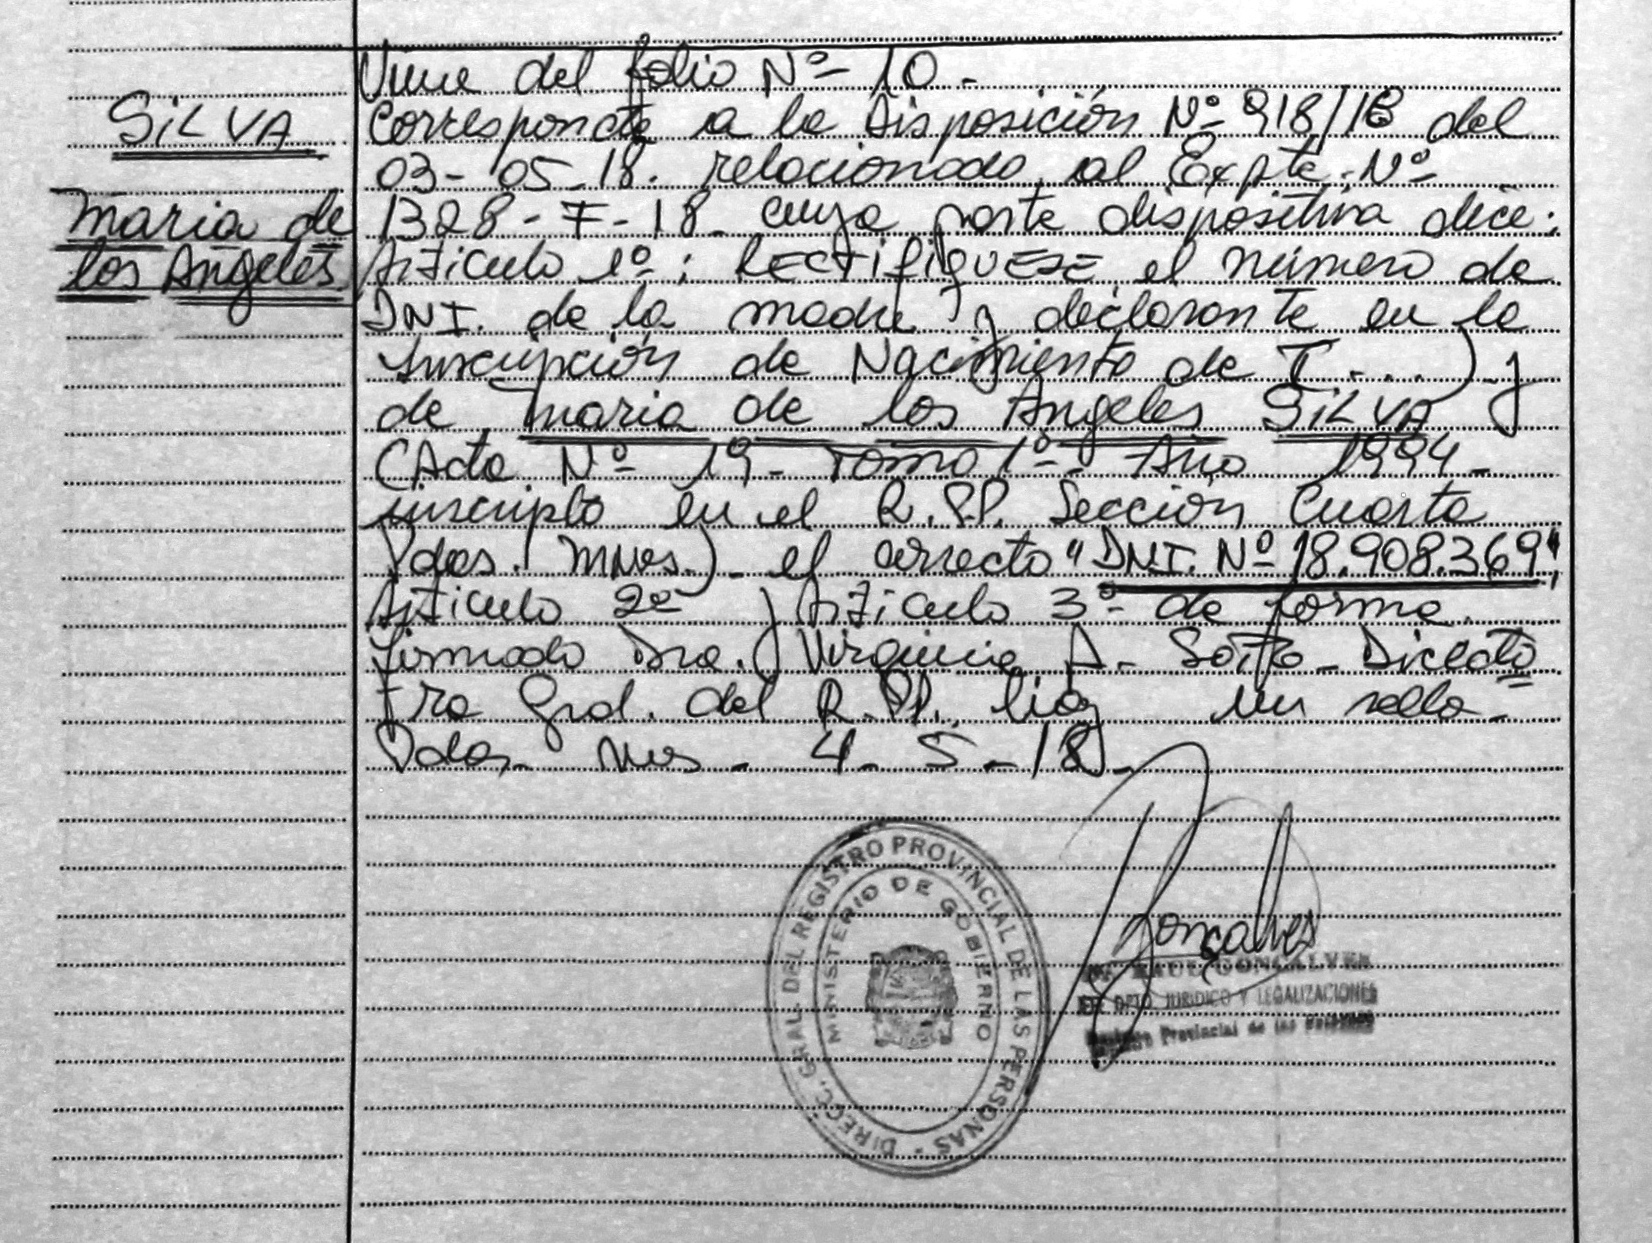 Viene del folio Nº 10 -
SILVA
Corresponde a la Disposición Nº 918/18 del
03-05-18. relacionado al Expte. Nº
Maria de
1328-F-18 cuya parte dispositiva dice:
los Angeles
Artículo 1º: RECTIFIQUESE el número de
DNI. de la madre y declarante en la
Inscripción de Nacimiento de T....) y
de Maria de los Angeles SILVA
(Acta Nº 19- Tomo 1º- Año 1994-
inscripto en el R.P.P. Sección Cuarta
Pdas. Mnes.) el correcto "DNI. Nº 18.908.369",
Artículo 2º y Artículo 3º de forma.
Firmado Dra. Virginia A. Sotto- Directo
ra Gral. del R.P.P. hay un sello-
Pdas. Mes - 4-5-18-
DIRECC. GRAL. DEL REGISTRO PROVINCIAL DE LAS PERSONAS
MINISTERIO DE GOBIERNO
Gonçalves
RAUL GONCALVES
DPTO. JURIDICO Y LEGALIZACIONES
Registro Provincial de las Personas